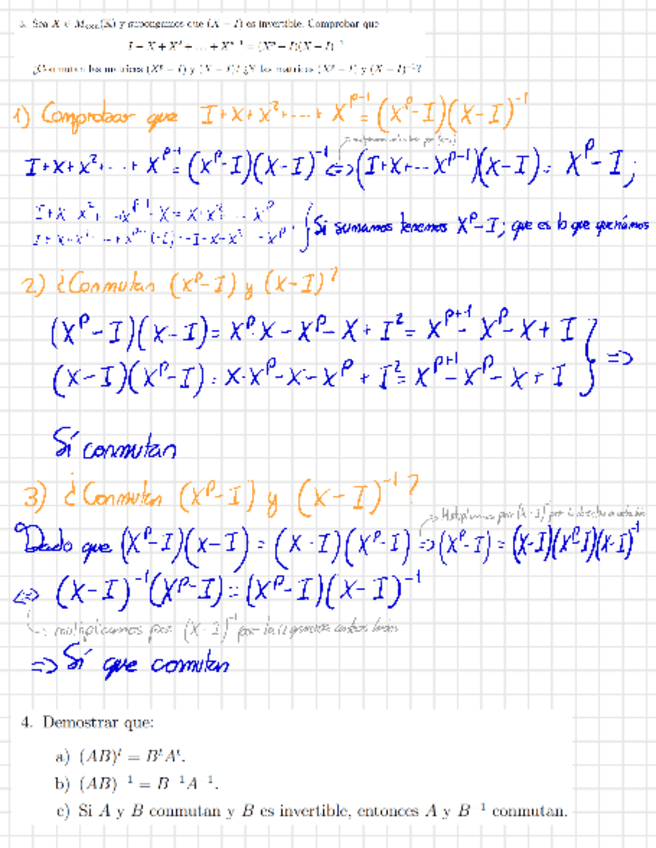 3. Sea X ∈ Mₙₓₙ(K) y supongamos que (X − I) es invertible. Comprobar que
I + X + X² + ... + Xᵖ⁻¹ = (Xᵖ − I)(X − I)⁻¹
¿Conmutan las matrices (Xᵖ − I) y (X − I)? ¿Y las matrices (Xᵖ − I) y (X − I)⁻¹?
1) Comprobar que I+X+X²+...+Xᵖ⁻¹=(Xᵖ-I)(X-I)⁻¹
I+X+X²+...+Xᵖ⁻¹=(Xᵖ-I)(X-I)⁻¹ <=> (I+X+...Xᵖ⁻¹)(X-I)= Xᵖ-I;
Si sumamos tenemos Xᵖ-I; que es lo que queríamos
2) ¿Conmutan (Xᵖ-I) y (X-I)?
(Xᵖ-I)(X-I)= Xᵖ·X - Xᵖ - X + I² = Xᵖ⁺¹ - Xᵖ - X + I
(X-I)(Xᵖ-I)= X·Xᵖ - X - Xᵖ + I² = Xᵖ⁺¹ - Xᵖ - X + I } =>
Sí conmutan
3) ¿Conmutan (Xᵖ-I) y (X-I)⁻¹?
Dado que (Xᵖ-I)(X-I) = (X-I)(Xᵖ-I) => (Xᵖ-I) = (X-I)(Xᵖ-I)(X-I)⁻¹
<=> (X-I)⁻¹(Xᵖ-I)=(Xᵖ-I)(X-I)⁻¹
multiplicamos por (X-I)⁻¹ por la izquierda ambos lados
=> Sí que conmutan
4. Demostrar que:
a) (AB)ᵗ = BᵗAᵗ.
b) (AB)⁻¹ = B⁻¹A⁻¹.
c) Si A y B conmutan y B es invertible, entonces A y B⁻¹ conmutan.